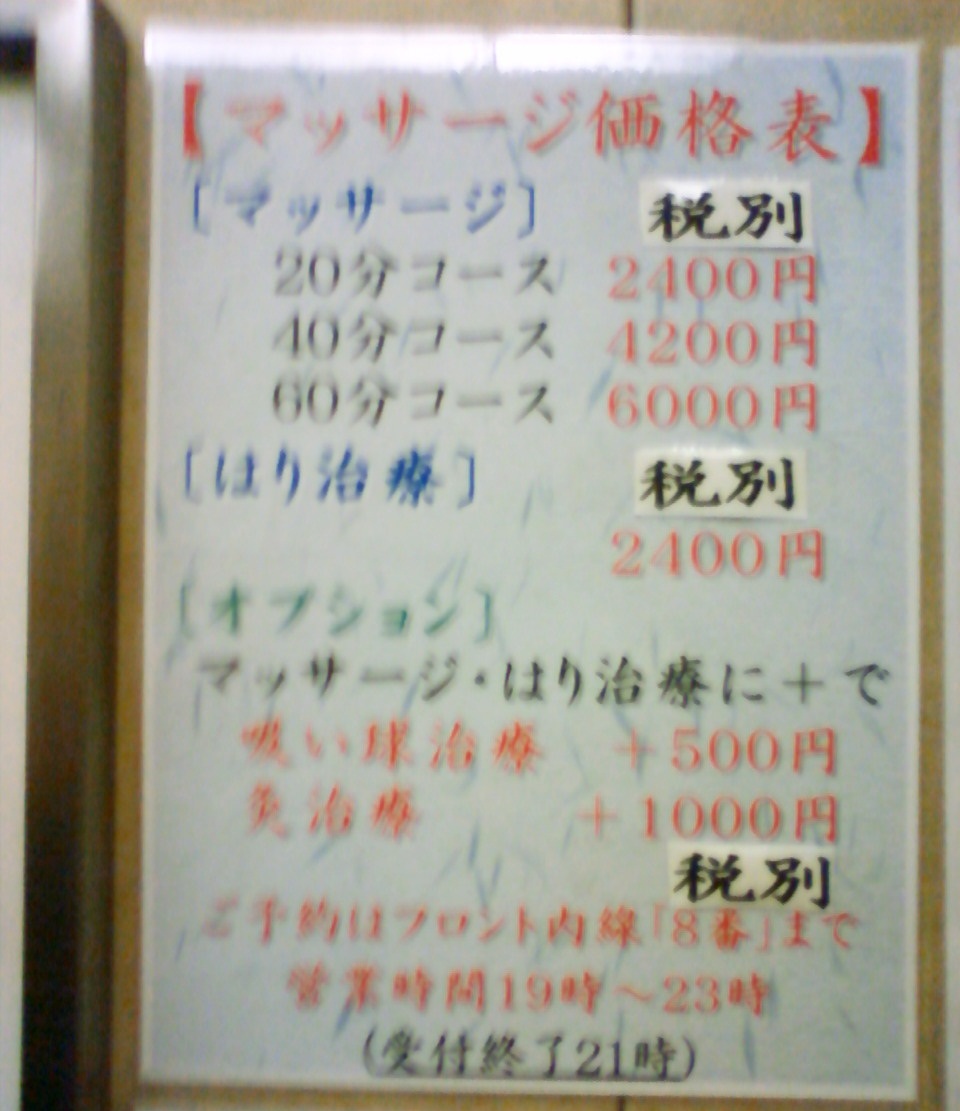 【マッサージ価格表】
[マッサージ] 税別
20分コース 2400円
40分コース 4200円
60分コース 6000円
[はり治療] 税別
2400円
[オプション]
マッサージ・はり治療に＋で
吸い球治療 ＋500円
灸治療 ＋1000円
税別
ご予約はフロント内線「8番」まで
営業時間19時～23時
(受付終了21時)